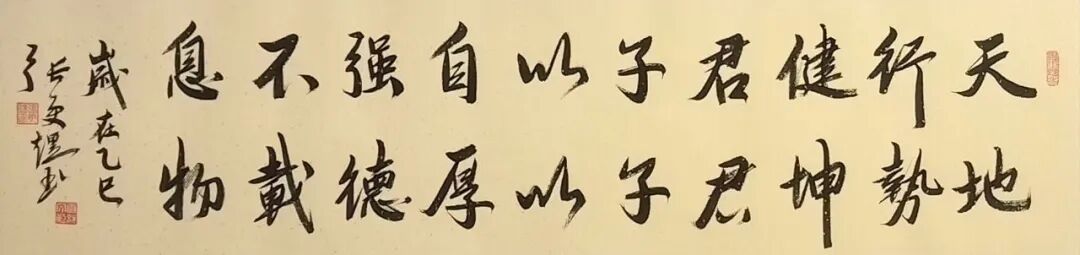 天行健君子以自强不息
地勢坤君子以厚德載物
歲在乙巳
张更书